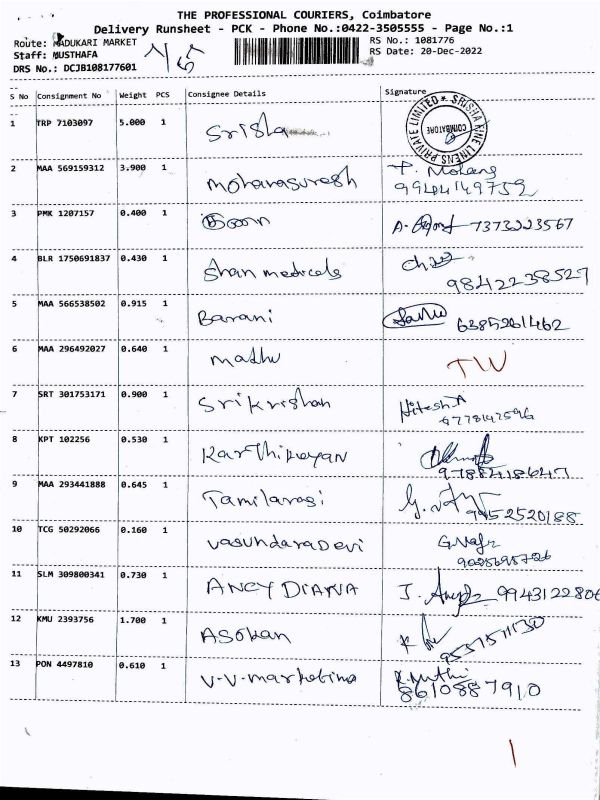 THE PROFESSIONAL COURIERS, Coimbatore
Delivery Runsheet - PCK - Phone No.:0422-3505555 - Page No.:1
Route: MADUKARI MARKET
RS No.: 1081776
Staff: MUSTHAFA
RS Date: 20-Dec-2022
DRS No.: DCJB108177601
S No Consignment No Weight PCS Consignee Details Signature
1 TRP 7103097 5.000 1 Srisha
SRISHA FINE LINENS PRIVATE LIMITED
COIMBATORE
2 MAA 569159312 3.900 1 Mohanasuresh P. Mohana
9944149752
3 PMK 1207157 0.400 1 A. 7373223567
4 BLR 1750691837 0.430 1 Shan medicals
9842238527
5 MAA 566538502 0.915 1 Barani
6385261462
6 MAA 296492027 0.640 1 Madhu
7 SRT 301753171 0.900 1 Srikrishan Hitesh A
8 KPT 102256 0.530 1 Karthikeyan
9788418647
9 MAA 293441888 0.645 1 Tamilarasi
9952520188
10 TCG 50292066 0.160 1 Vasundara Devi
11 SLM 309800341 0.730 1 ANCY DIANA J. 9943122806
12 KMU 2393756 1.700 1 ASOKAN K
13 PON 4497810 0.610 1 V-V-marketing K. Muthi
8610887910